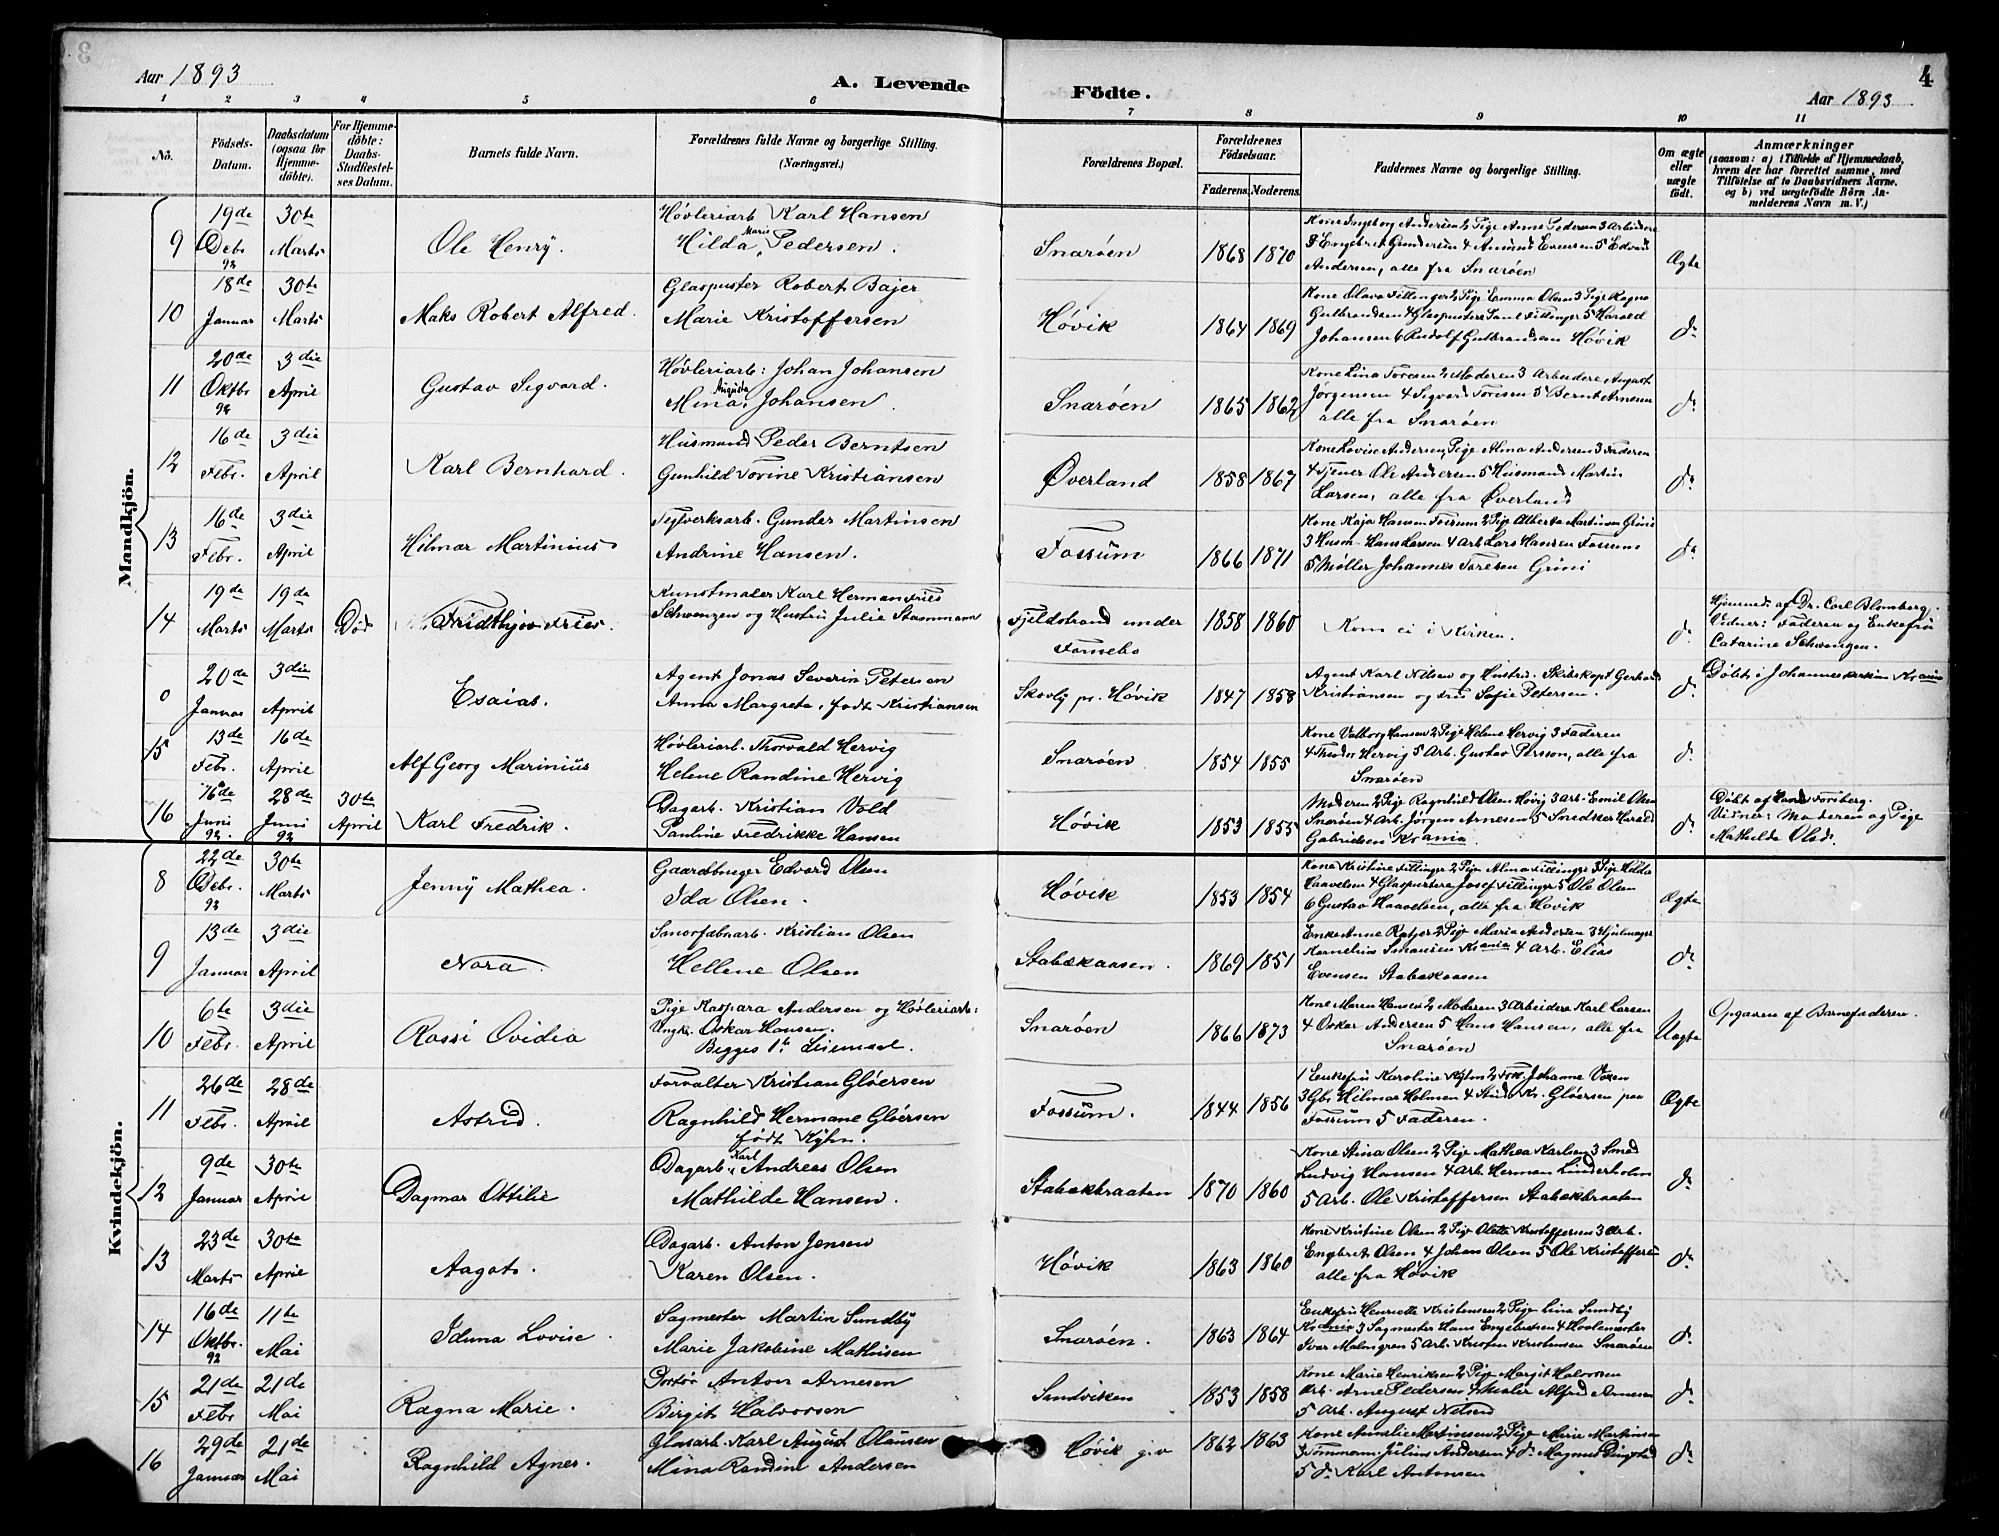 Aar 1893
A. Levende Födte.
4
Aar 1893
1 2 3 4 5 6 7 8 9 10 11
No.
Födsels-Datum.
Daabsdatum (ogsaa for Hjemme-döbte).
For Hjemme-döbte: Daabs-Stadfæstel-ses Datum.
Barnets fulde Navn.
Forældrenes fulde Navne og borgerlige Stilling. (Næringsvei.)
Forældrenes Bopæl.
Forældrenes Födselsaar.
Faderens. Moderens.
Faddernes Navne og borgerlige Stilling.
Om ægte eller uægte födt.
Anmærkninger
(saasom: a) i Tilfælde af Hjemmedaab, hvem der har forrettet samme, med Tilföielse af to Daabsvidners Navne, og b) ved uægtefödte Börn An-melderens Navn m. V.)
Mandkjön.
9 19de Debr 92 30te Marts Ole Henry. Høvleriarb Karl Hansen
Hilda Marie Pedersen. Snarøen 1868 1870 Kone Ingeborg Andersen 2 Pige Anna Pedersen 3 Arbeidere
Engebret Gundersen 4 Amund Evensen 5 Edvard
Andersen, alle fra Snarøen Ægte
10 18de Januar 30te Marts Maks Robert Alfred. Glaspuster Robert Bajer
Marie Kristoffersen Høvik 1864 1869 Kone Olava Fillinger 2 Pige Emma Olsen 3 Pige Ragna
Gulbrandsen 4 Glaspustere Saml Fillinger 5 Harald
Johansen 6 Rudolf Gulbrandsen Høvik do
11 20de Oktbr 92 3die April Gustav Sigvard. Høvleriarb: Johan Johansen
Mina Augusta Johansen Snarøen 1865 1862 Kone Lina Toresen 2 Moderen 3 Arbeidere August
Jørgensen 4 Sigvard Toresen 5 Bernt Arnesen
alle fra Snarøen do
12 16de Febr. 3die April Karl Bernhard. Husmand Peder Berntsen
Gunhild Torine Kristiansen Øverland 1858 1867 Kone Lovise Andersen, Pige Alma Andersen 3 Faderen
4 Tjener Ole Andersen 5 Husmand Martin
Larsen, alle fra Øverland do
13 16de Febr. 3die April Hilmar Martinius Teglverksarb. Gunder Martinsen
Andrine Hansen. Fossum 1866 1871 Kone Kaja Hansen Fossum 2 Pige Alberta Martinsen Grini
3 Husm. Hans Larsen 4 Arb Lars Hansen Fossum
5 Møller Johannes Toresen Grini do
14 19de Marts 19de Marts Død Fridthjov Fries. Kunstmaler Karl Herman Fries
Schwenzen og Hustru Julie Stammann Fjeldstrand under
Fornebo 1858 1860 Kom ei i Kirken. do Hjemmed. af Dr. Carl Blomberg.
Vidner: Faderen og Enkefru
Catarine Schwenzen.
0 20de Januar 3die April Esaias. Agent Jonas Severin Petersen
Anna Margrete, født Kristiansen Skovly pr. Høvik 1847 1858 Agent Karl Nilsen og Hustru. Skibskapt Gerhard
Kristiansen og Fru Sofie Petersen do Døbt i Johanneskirken Krania
15 13de Febr. 16de April Alf Georg Marinius Høvleriarb. Thorvald Hervig
Helene Randine Hervig Snarøen. 1854 1855 Kone Valborg Hansen 2 Pige Helene Hervig 3 Faderen
4 Theodor Hervig 5 Arb. Gustav Persson, alle fra
Snarøen do
16 16de Juni 92. 28de Juni 92 30te April Karl Fredrik. Dagarb. Kristian Vold
Pauline Fredrikke Hansen Høvik 1853 1855 Moderen 2 Pige Ragnhild Olsen Høvig 3 Arb. Emil Olsen
Snarøen 4 Arb. Jørgen Arnesen 5 Snedker Harald
Gabrielsen Krania do Døbt af Forsberg.
Vidner: Moderen og Pige
Mathilde Olsd.
Kvindekjön.
8 22de Debr. 92 30te Marts Jenny Mathea. Gaardbruger Edvard Olsen
Ida Olsen. Høvik 1853 1854 Kone Kristine Fillinger 2 Pige Alma Fillinger 3 Pige Hilda
Haavelsen 4 Glaspustere Josef Fillinger 5 Ole Olsen
6 Gustav Haavelsen, alle fra Høvik Ægte
9 13de Januar 3die April Nora. Smørfabarb. Kristian Olsen
Hellene Olsen Stabækaasen. 1869 1851 Enke Anne 2 Pige Maria Andersen 3 Hjulmager
Kornelius Simensen Krania 4 Arb. Elias
Evensen Stabækaasen do
10 6te Febr. 3die April Rossi Ovidia Pige Kaspara Andersen og Høvleriarb:
Ungk. Oskar Hansen.
Begges 1ste Leiermaal. Snarøen 1866 1873 Kone Maren Hansen 2 Moderen 3 Arbeidere Karl Larsen
4 Oskar Andersen 5 Hans Hansen, alle fra
Snarøen Uægte Opgaven af Barnefaderen.
11 26de Febr. 28de April Astrid. Forvalter Kristian Gløersen
Ragnhild Hermane Gløersen
født Kyhn. Fossum. 1844 1856 1 Enkefru Karoline Kyhn 2 Frk. Johanne Voxen
3 Gbr Hilmar Holmen 4 Stud Kr. Gløersen paa
Fossum 5 Faderen. Ægte
12 9de Januar 30te April Dagmar Ottilie Dagarb. Karl Andreas Olsen
Mathilde Hansen. Stabækbraaten 1870 1860 Kone Stina Olsen 2 Pige Mathea Karlsen 3 Smed
Ludvig Hansen 4 Arb. Herman Linderholm
5 Arb. Ole Kristoffersen Stabækbraaten do
13 23de Marts 30te April Aagot. Dagarb. Anton Jensen
Karen Olsen. Høvik 1863 1860 Kone Kristine Olsen 2 Pige Olette Kristoffersen 3 Arb.
Engebrit Olsen 4 Johan Olsen 5 Ole Kristoffersen
alle fra Høvik do
14 16de Oktbr. 92 11te Mai Iduna Lovise. Sagmester Martin Sundby
Marie Jakobine Mathisen Snarøen. 1863 1864 Enkefru Henriette Kristensen 2 Pige Lina Sundby
Krania 3 Sagmester Hans Engebretsen 4 Høvlemester
Ivar Malmgren 5 Arb. Kristen Kristensen Snarøen do
15 21de Febr 21de Mai Ragna Marie. Portør Anton Arnesen
Birgit Halvorsen Sandviken 1853 1858 Kone Marie Henriksen 2 Pige Margit Halvorsen
Arb. Arne Pedersen 4 Maler Alfred Arnesen
5 Arb. August Nilsen do
16 29de Januar 21de Mai Ragnhild Agnes. Glasarb. Karl August Olausen
Mina Randine Andersen Høvik g.v 1862 1863 Kone Amalie Martinsen 2 Pige Marie Martinsen
3 Tømmerm. Julius Andersen 4 do Magnus
5 do Karl Antonsen do